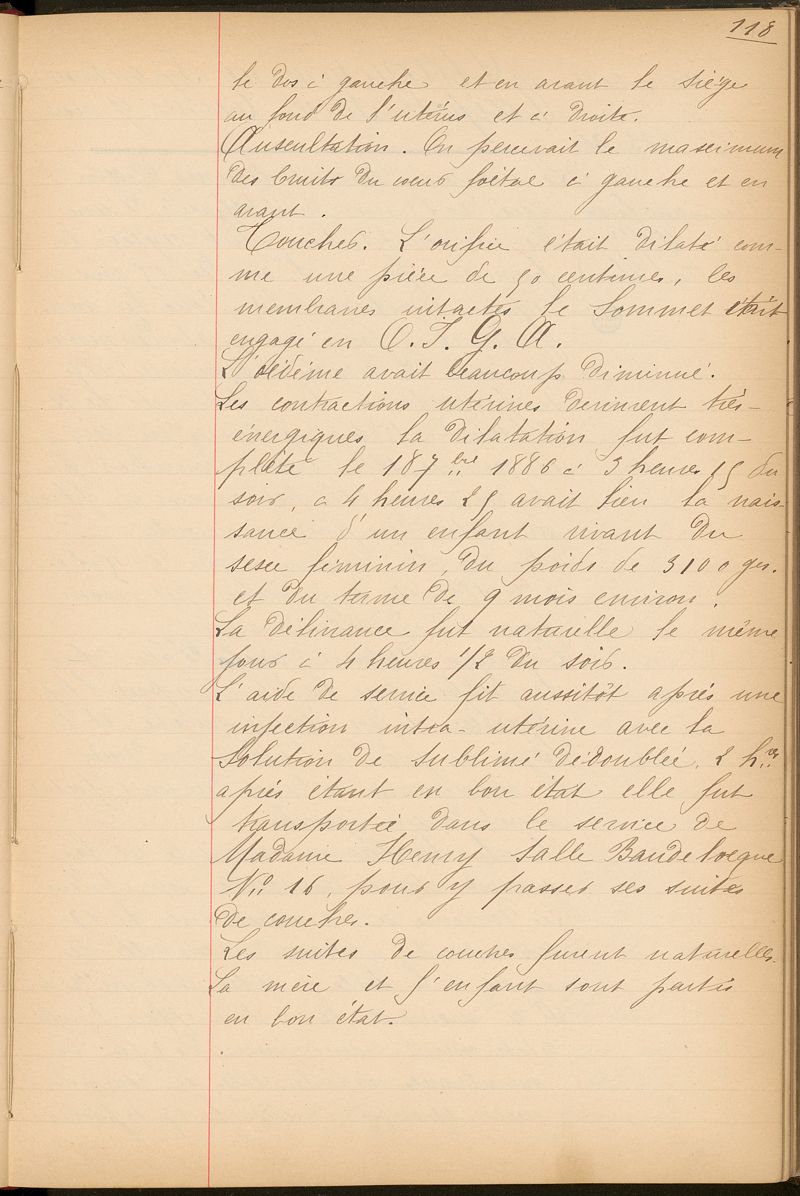 118
le dos à gauche et en avant le siège
au fond de l'utérus et à droite.
Auscultation. On percevait le maximum
des bruits du cœur fœtal à gauche et en
avant.
Toucher. L'orifice était dilaté com-
me une pièce de 50 centimes, les
membranes intactes le Sommet était
engagé en O. I. G. A.
L'œdème avait beaucoup diminué.
Les contractions utérines devinrent très-
énergiques la dilatation fut com-
plète le 18 7bre 1886 à 3 heures 15 du
soir, à 4 heures 25 avait lieu la nais-
sance d'un enfant vivant du
sexe féminin, du poids de 3100 grs.
et du terme de 9 mois environ.
La délivrance fut naturelle le même
jour à 4 heures 1/2 du soir.
L'aide de service fit aussitôt après une
injection intra-utérine avec la
Solution de sublimé dédoublée, 2 hres
après étant en bon état elle fut
transportée dans le service de
Madame Henry Salle Baudelocque
No 16, pour y passer ses suites
de couches.
Les suites de couches furent naturelles.
La mère et l'enfant sont partis
en bon état.